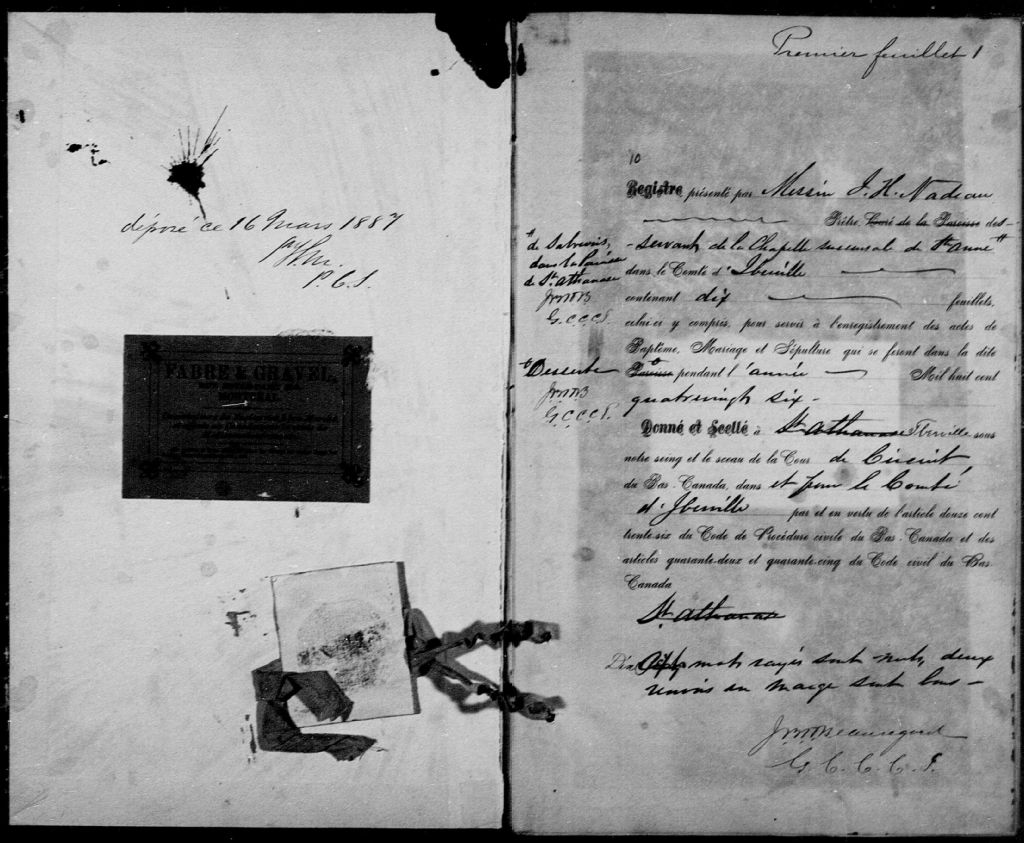 déposé ce 16 Mars 1887
P.C.S.
FABRE & GRAVEL,
MONTREAL
Premier feuillet 1
10
Registre présenté par Messire J. H. Nadeau
Prêtre Curé de la Paroisse des-
-servant de la Chapelle succursale de Ste Anne
dans le Comté d'Iberville
contenant dix feuillets,
celui-ci y compris, pour servir à l'enregistrement des actes de
Baptême, Mariage et Sépulture qui se feront dans la dite
Paroisse pendant l'année Mil huit cent
quatrevingt six -
Donné et Scellé à St Athanase Iberville sous
notre seing et le sceau de la Cour de Circuit
du Bas-Canada, dans et pour le Comté
d'Iberville par et en vertu de l'article douze cent
trente-six du Code de Procédure civile du Bas-Canada et des
articles quarante-deux et quarante-cinq du Code civil du Bas
Canada
St Athanase
mots rayés sont nuls, deux
renvois en marge sont bons -
G. C. C. C. I.
de Sabrevois,
dans la Paroisse
de St Athanase
G.C.C.C.I.
Desserte
G.C.C.C.I.